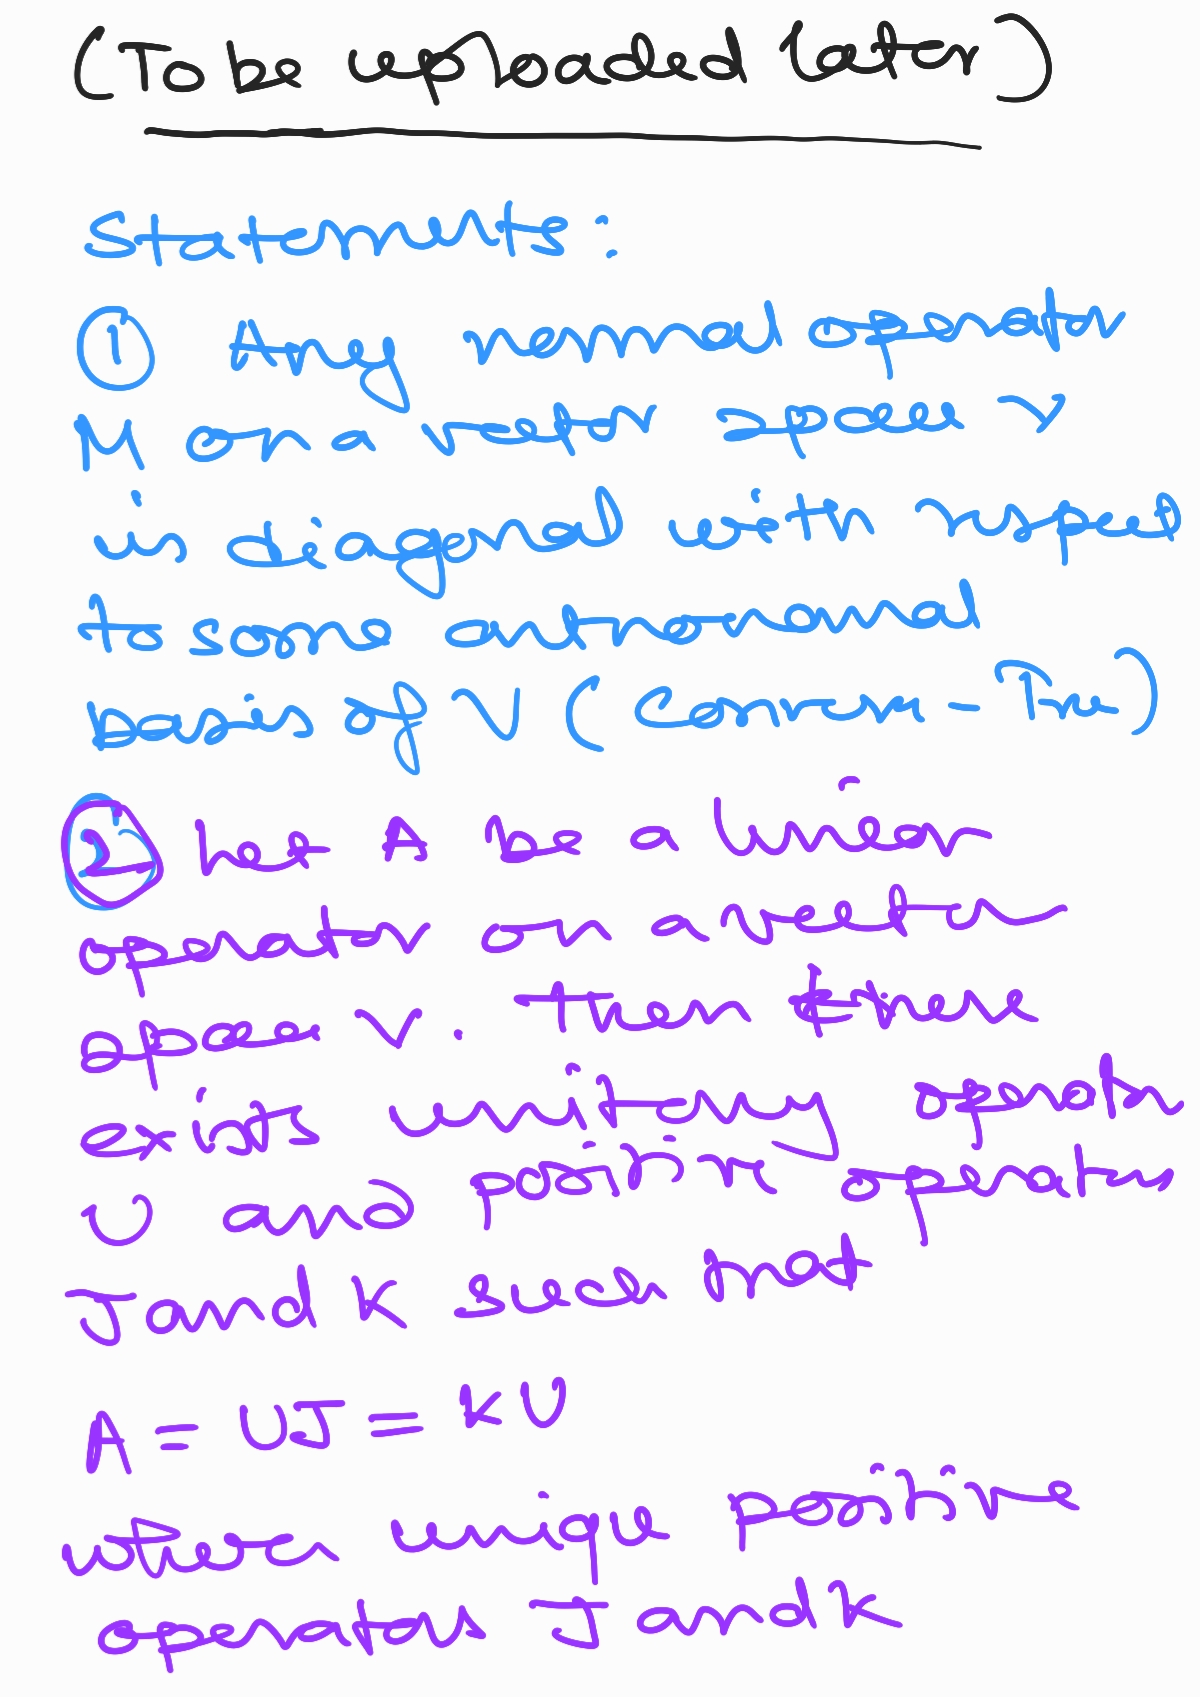 (To be uploaded later)
Statements:
① Any normal operator
M on a vector space V
is diagonal with respect
to some orthonormal
basis of V (Converse - True)
② Let A be a linear
operator on a vector
space V. Then there
exists unitary operator
U and positive operators
J and K such that
A = UJ = KU
where unique positive
operators J and K